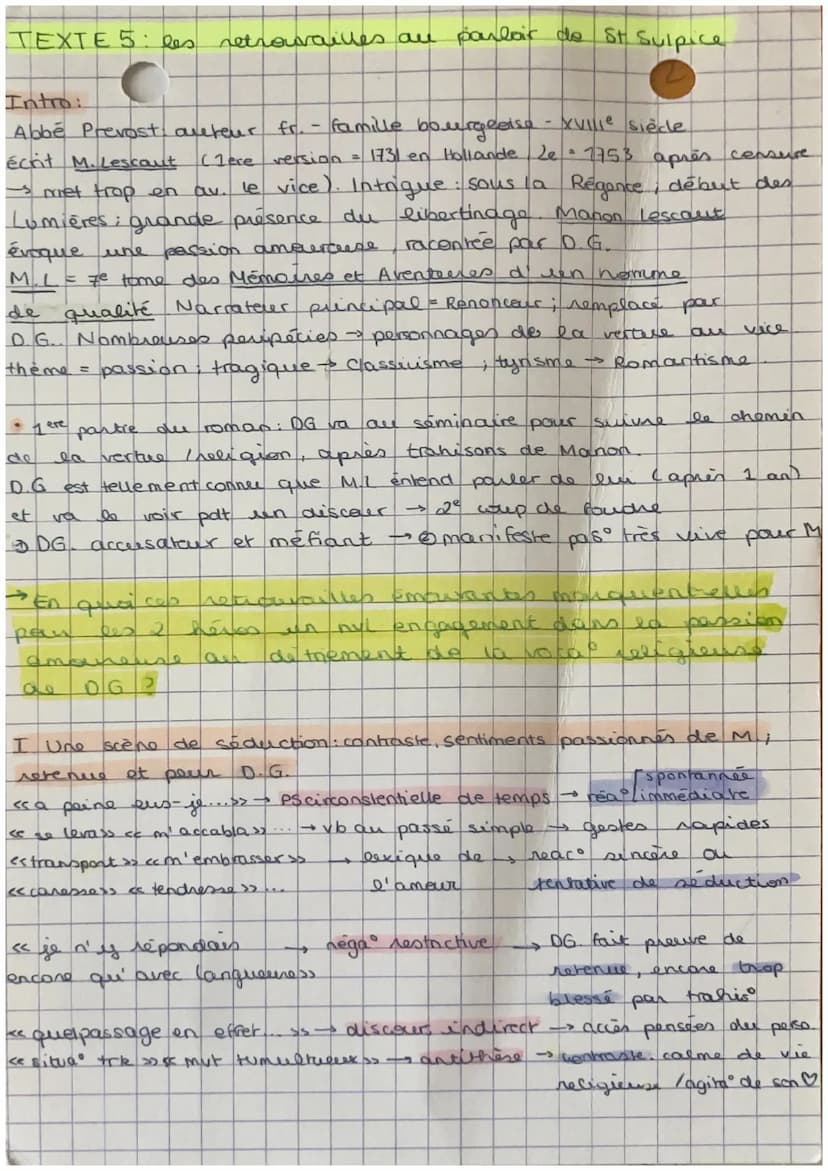 TEXTE 5 : les retrouvailles au parloir de St Sulpice
2
Intro :
Abbé Prevost auteur fr. - famille bourgeoise - XVIIIe siècle
écrit M. Lescaut (1ere version = 1731 en Hollande, 2e = 1753 après censure
→ met trop en av. le vice). Intrigue : sous la Régence, début des
Lumières ; grande présence du libertinage. Manon Lescaut
évoque une passion amoureuse, racontée par D.G.
M.L = 7e tome des Mémoires et Aventures d'un homme
de qualité Narrateur principal = Renoncour ; remplacé par
D.G.. Nombreuses péripéties → personnages de la vertue au vice
thème = passion ; tragique → Classicisme ; lyrisme → Romantisme.
• 1ere partie du roman : DG va au séminaire pour suivre le chemin
de la vertue / religion, après trahisons de Manon.
D.G est tellement connu que M.L entend parler de lui (après 1 an)
et va le voir pdt un discour → 2e coup de foudre
DG. accusateur et méfiant → manifeste pas° très vive pour M
→ En quoi ces retrouvailles émouvantes marquent-elles
pour les 2 héros un nvl engagement dans la passion
amoureuse au détriement de la voca° religieuse
de DG ?
I Une scène de séduction : contraste, sentiments passionnés de M. ;
retenue et peur D.G.
<< a peine eus-je... >> → PS circonstentielle de temps → réa° immédiate
spontannée
<< se leva >> << m'accabla >> ... → vb au passé simple → gestes rapides
<< transport >> << m'embrasser >> → lexique de → reac° sincère ou
<< caresse >> << tendresse >> ... l'amour tentative de séduction
<< je n'y répondais → néga° restrictive → DG. fait preuve de
encore qu'avec langueur >> retenue, encore trop
blessé par trahis°
<< quel passage en effet... >> → discours indirect → accès pensées du perso.
<< situa° trk >> << mvt tumultueux >> → antithèse → contraste. calme de vie
religieuse / agita° de son ♡